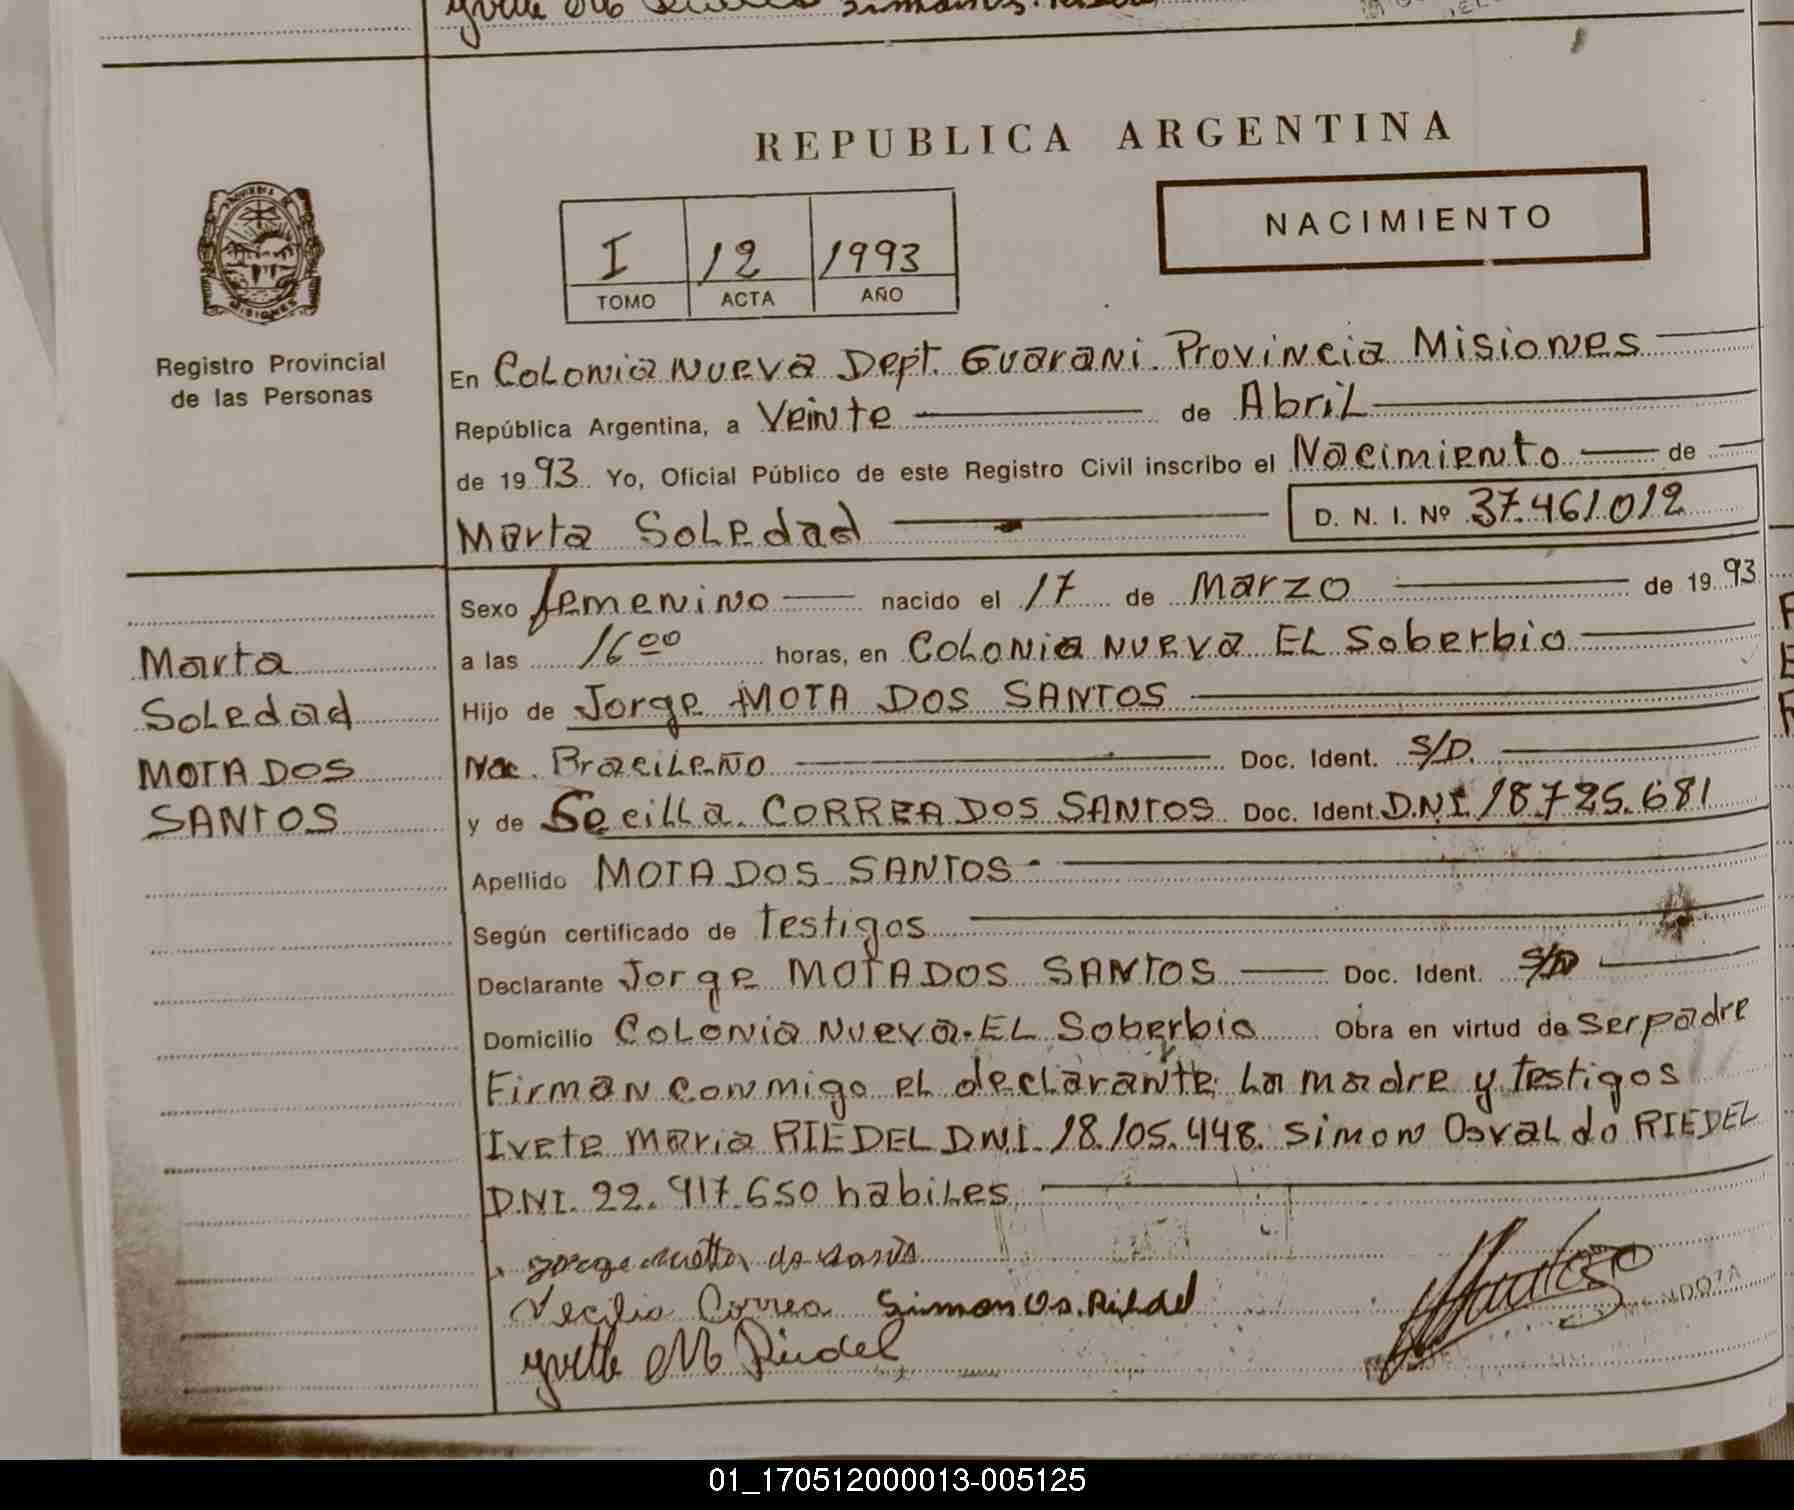 REPUBLICA ARGENTINA
NACIMIENTO
I 12 1993
TOMO ACTA AÑO
Registro Provincial
de las Personas
En Colonia Nueva Dept. Guarani. Provincia Misiones
República Argentina, a Veinte de Abril
de 19 93 Yo, Oficial Público de este Registro Civil inscribo el Nacimiento de
Marta Soledad D. N. I. Nº 37.461.012
Sexo femenino nacido el 17 de Marzo de 19 93
a las 16 00 horas, en Colonia Nueva El Soberbio
Hijo de Jorge MOTA DOS SANTOS
Nac. Braцileño Doc. Ident. S/D.
y de Secilla CORREA DOS SANTOS Doc. Ident. D.N.I. 18.725.681
Apellido MOTA DOS SANTOS
Según certificado de Testigos
Declarante Jorge MOTA DOS SANTOS Doc. Ident. S/D
Domicilio Colonia Nueva. El Soberbio Obra en virtud de Ser padre
Firman conmigo el declarante, la madre y testigos
Ivete Maria RIEDEL D.N.I. 18.105.448. Simon Osvaldo RIEDEL
D.N.I. 22.917.650 habiles
Marta
Soledad
MOTA DOS
SANTOS
Correa Simon Os. Riedel
Yvette M Riedel
01_170512000013-005125